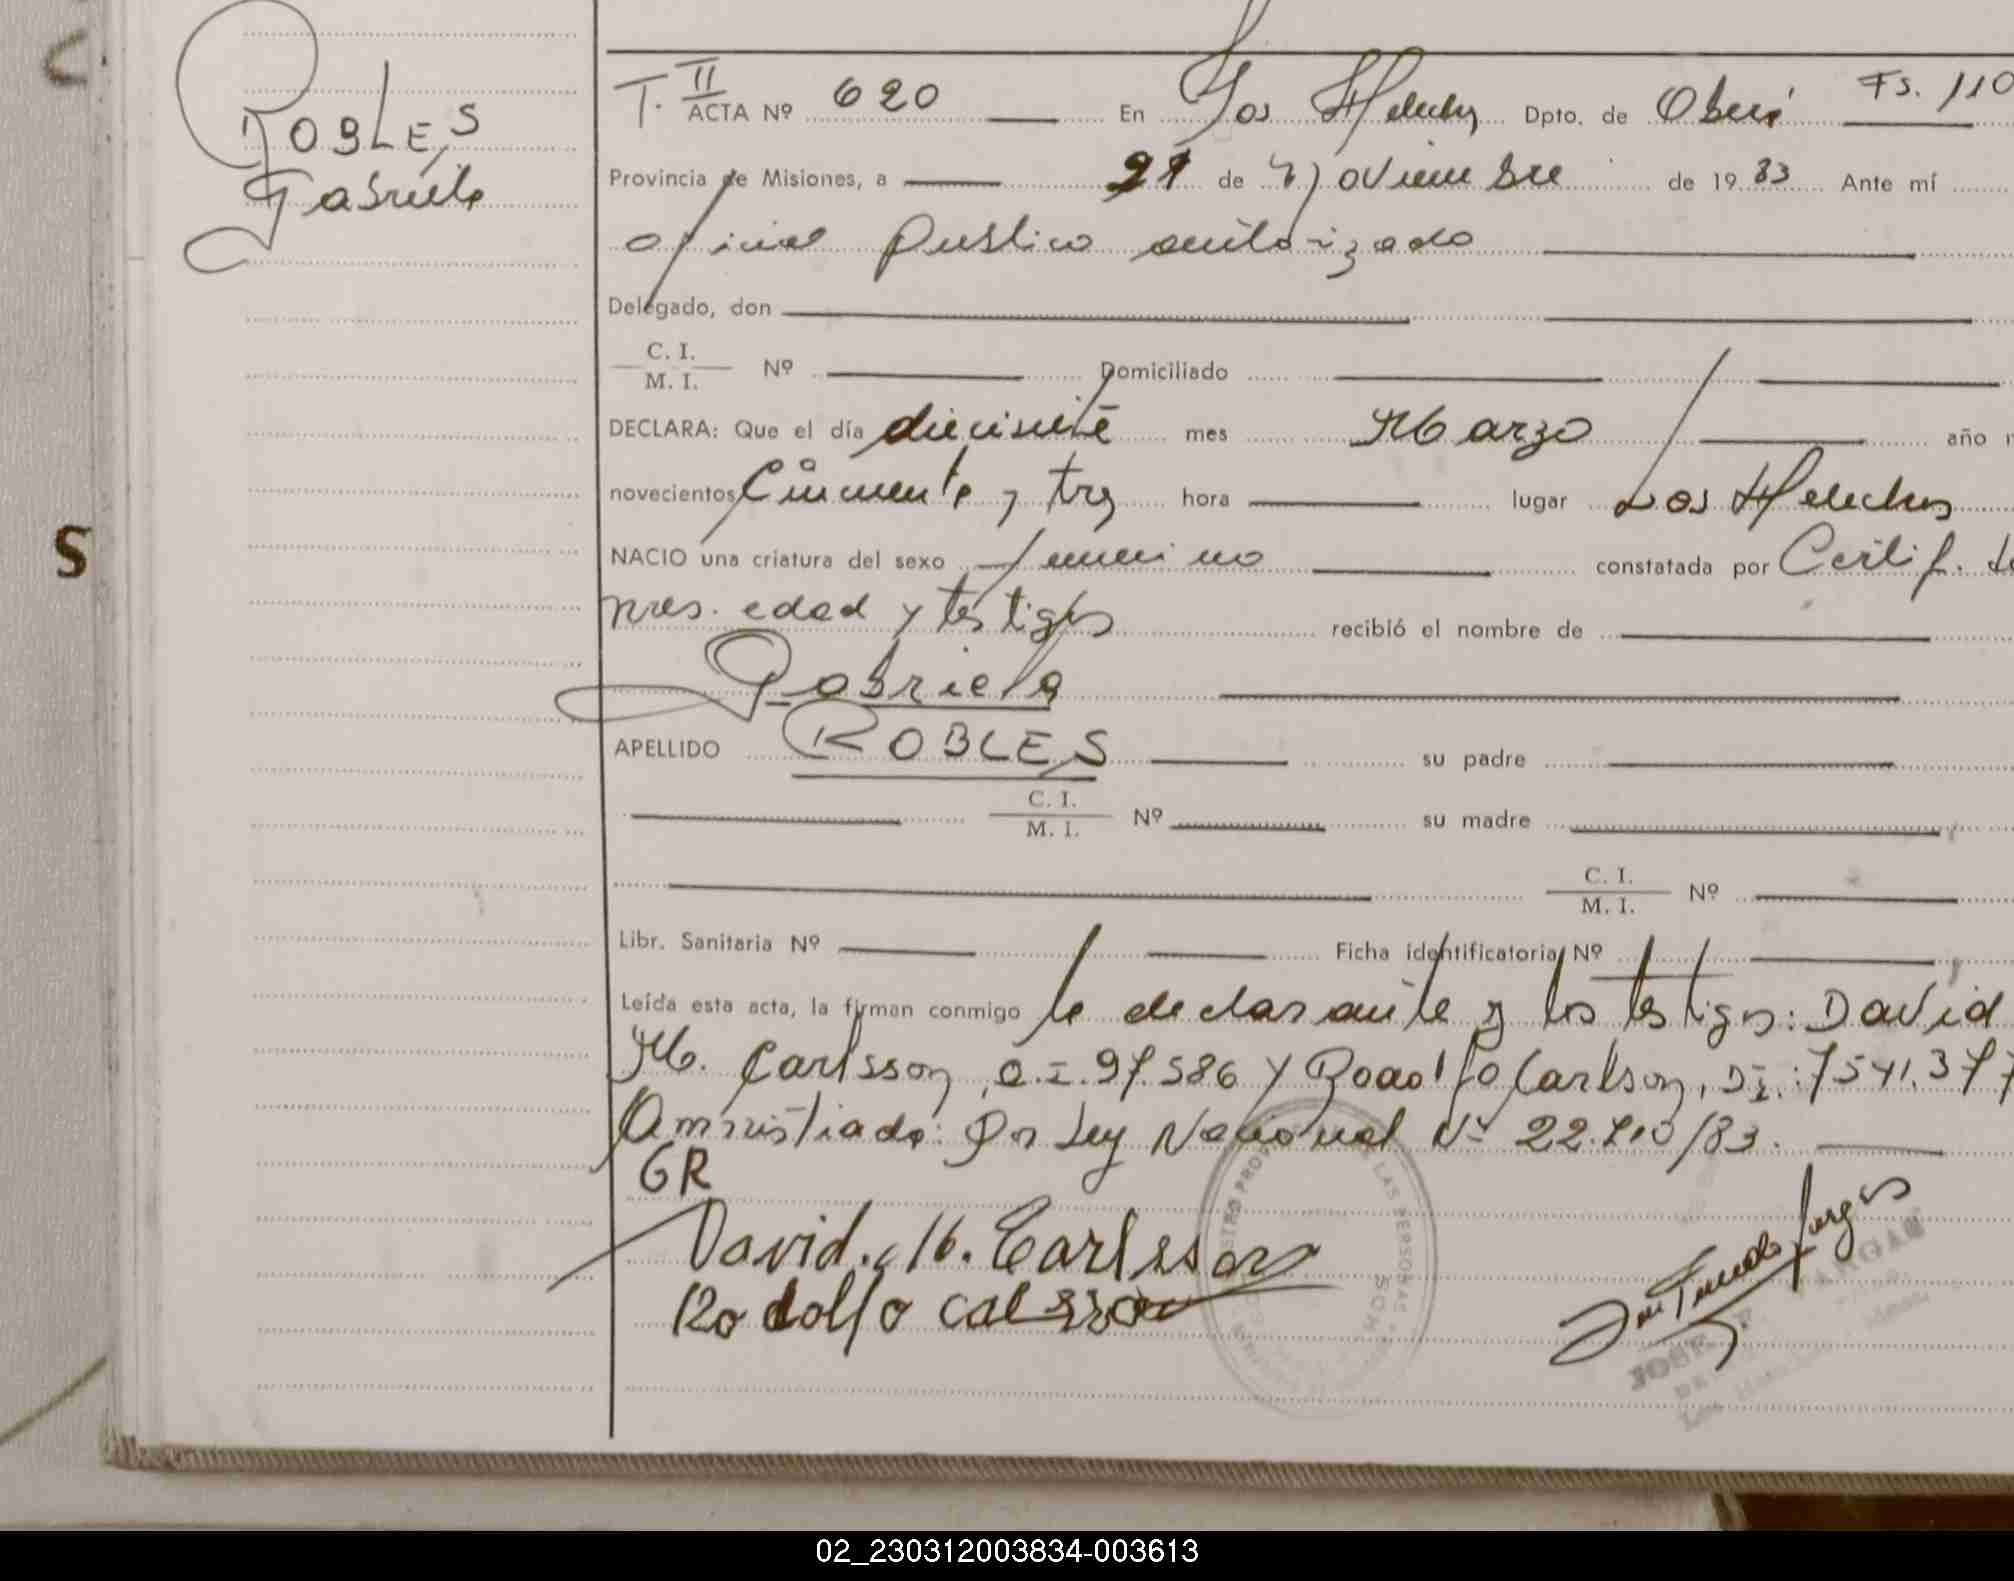 ROBLES
Gabriela
S
T. II
ACTA Nº 620 En Los Helechos Dpto. de Oberá Fs. 110
Provincia de Misiones, a 21 de Noviembre de 1983 Ante mí
oficial publico autorizado
Delegado, don
C. I.
M. I. Nº Domiciliado
DECLARA: Que el día diecisiete mes Marzo año
novecientos Cincuenta y tres hora lugar Los Helechos
NACIO una criatura del sexo femenino constatada por Certif. de
pres. edad y testigos recibió el nombre de
Gabriela
APELLIDO ROBLES su padre
C. I.
M. I. Nº su madre
C. I.
M. I. Nº
Libr. Sanitaria Nº Ficha identificatoria Nº
Leída esta acta, la firman conmigo la declarante y los testigos: David
M. Carlsson, C.I. 97.586 y Rodolfo Carlson, D.I.: 7541.377
Amnistiado: Por Ley Nacional Nº 22.710/83.
GR
David. M. Carlsson
Rodolfo Calsson
LAS PERSONAS
JOSE F. VARGAS
02_230312003834-003613